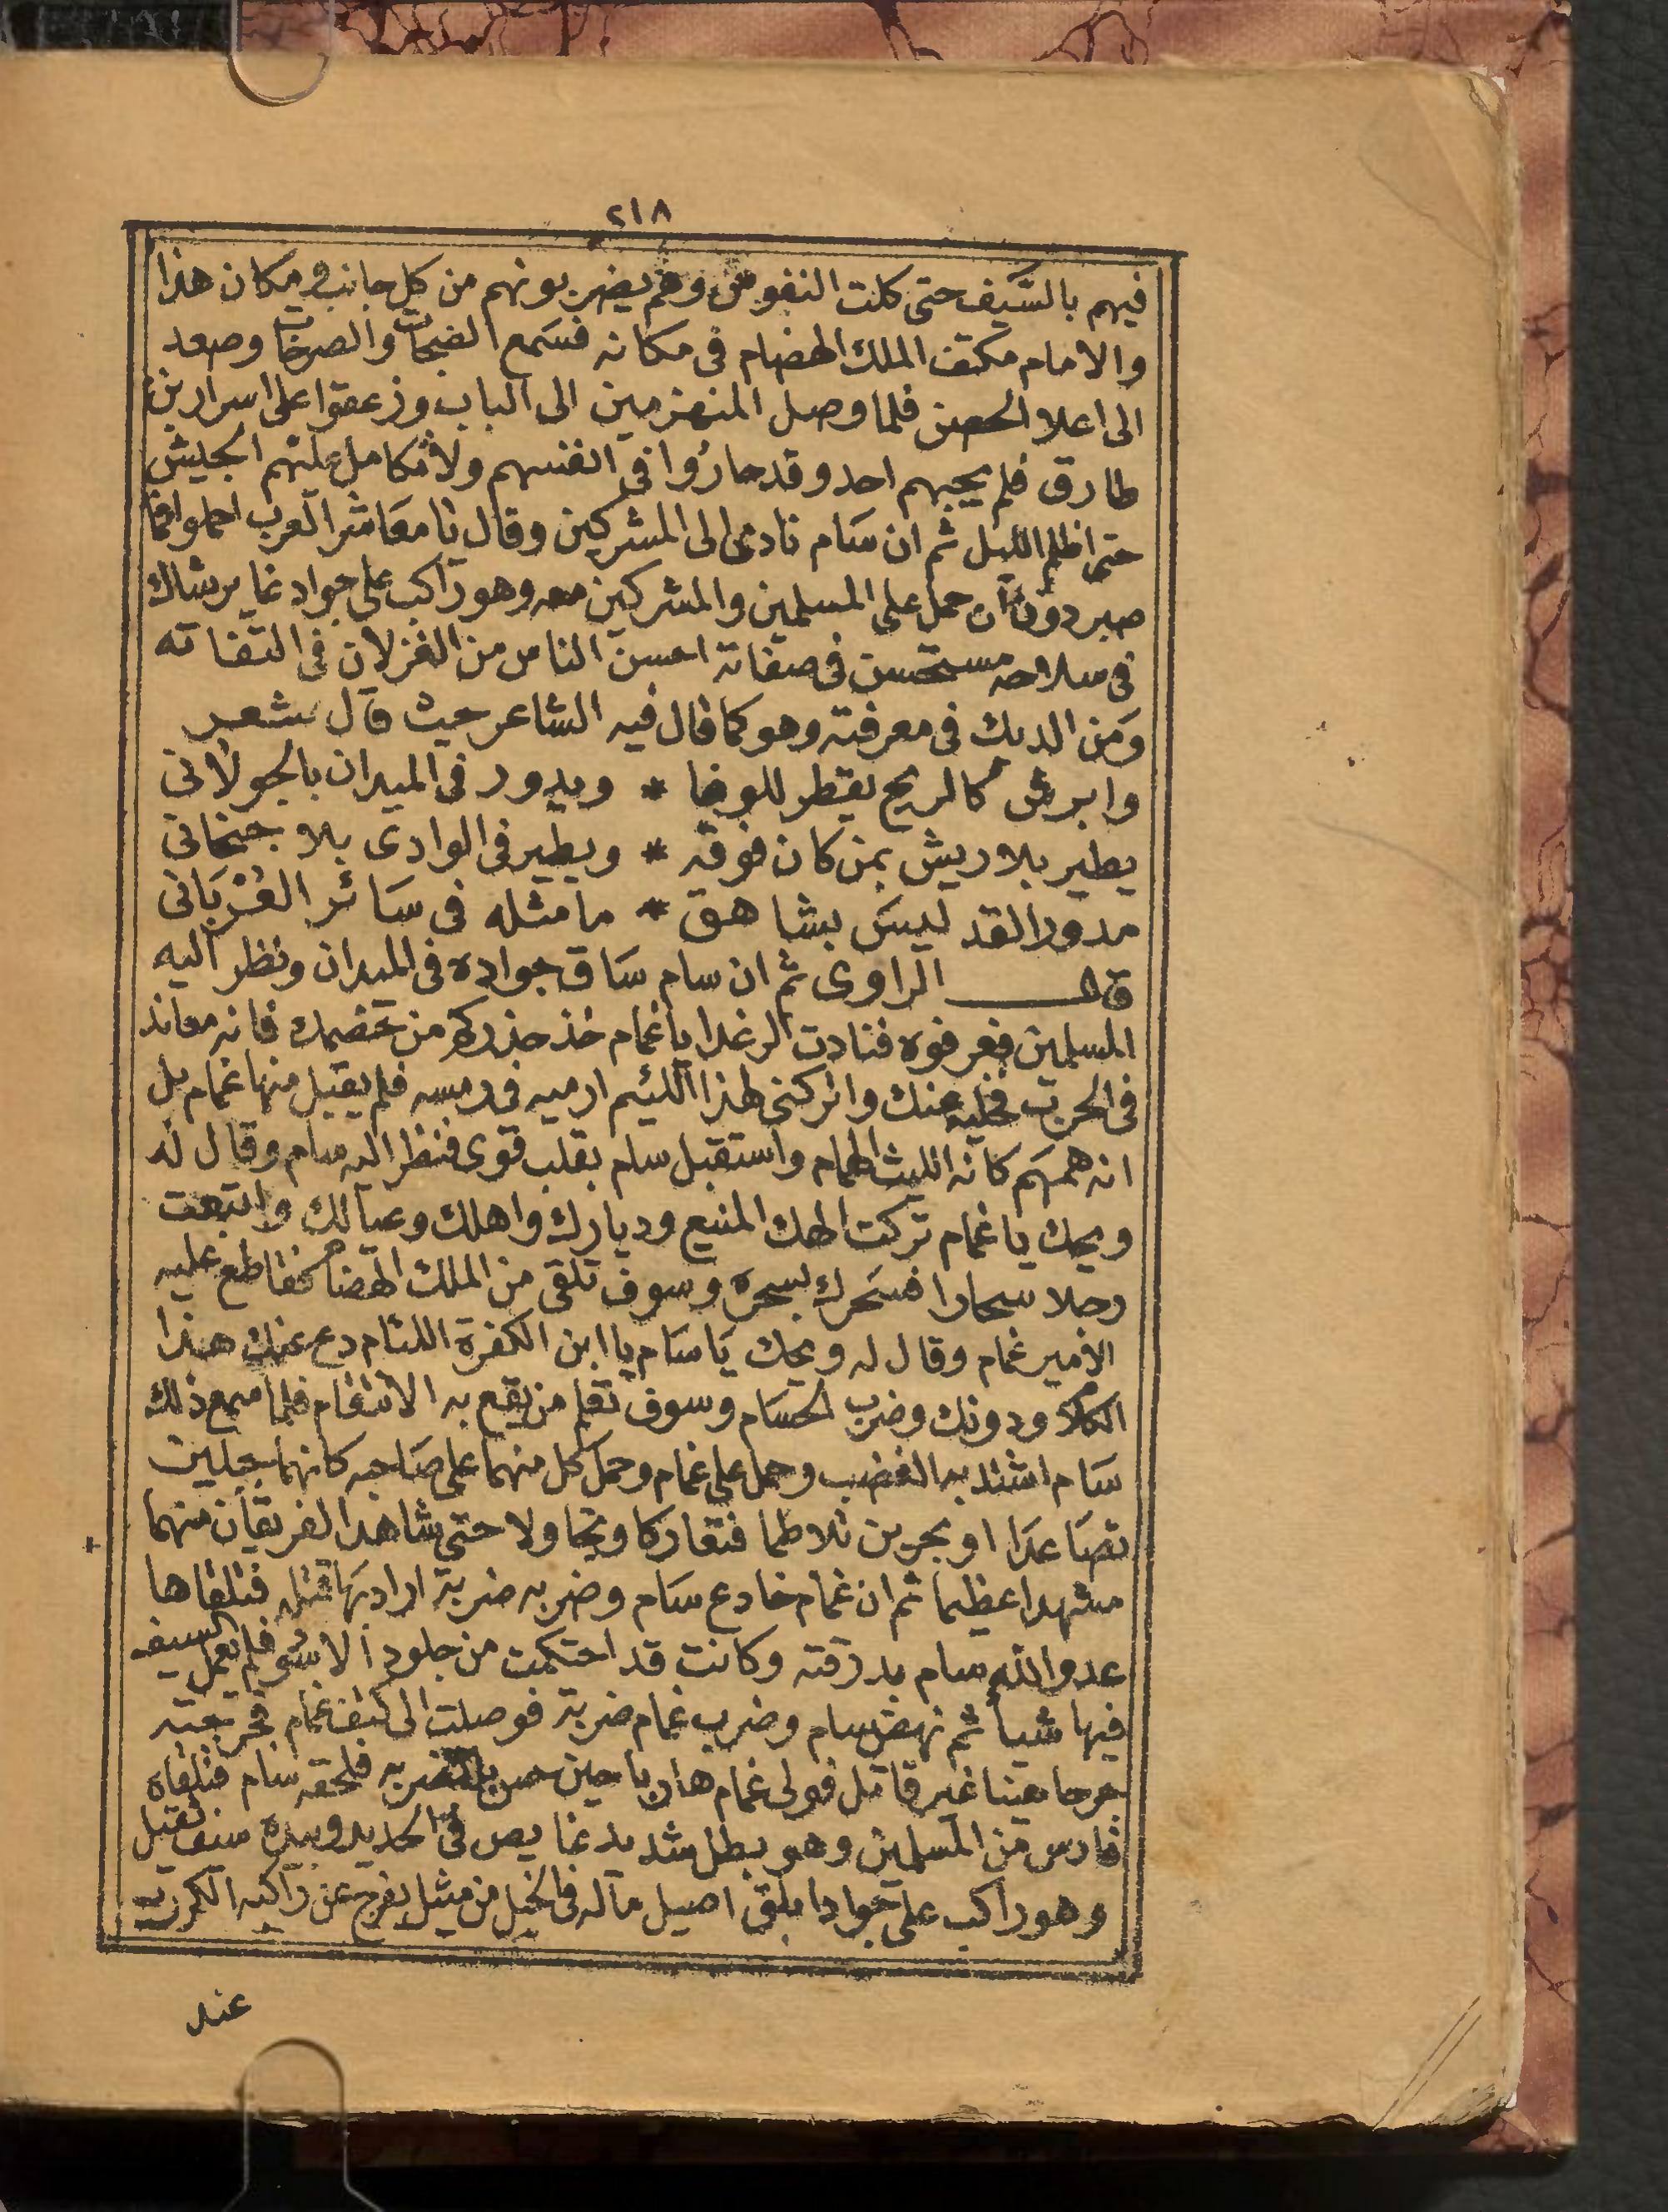 ٢١٨
فيهم بالسيف حتى كلت النفوس وهم يضربونهم من كل جانب ومكان هذا
والامام مكتف الملك الهضام فى مكانه فسمع الضجات والصرخات وصعد
الى اعلا الحصن فلما وصل المنهزمين الى الباب وزعقوا على اسرار بن
طارق فلم يجيبهم احد وقد حاروا فى انفسهم ولا تكامل عليهم الجيش
حتى اظلم الليل ثم ان سام نادى الى المشركين وقال يا معاشر العرب احملوا فما
صبر دون ان حمل على المسلمين والمشركين معه وهو راكب على جواد غاير شاك
فى سلاحه مستحسن فى صفاته احسن الناس من الغزلان فى التفاته
ومن الديك فى معرفته وهو كما قال فيه الشاعر حيث قال شعر
وابرش كالريح يقطر للوغا * ويدور فى الميدان بالجولانى
يطير بلا ريش بمن كان فوقه * ويطير فى الوادى بلا جنحانى
مدور القد ليس بشاهق * ما مثله فى سائر الغزبانى
قال الراوى ثم ان سام ساق جواده فى الميدان ونظر اليه
المسلمين فعرفوه فنادت الرغدا يا غمام خذ حذرك من خصمك فانه معاند
فى الحرب فخليه عنك واتركنى لهذا اللئيم ارميه فى رمسه فلم يقبل منها غمام بل
انه همهم كانه الليث الهمام واستقبل سام بقلب قوى فنظر اليه سام وقال له
ويحك يا غمام تركت الهك المنيع وديارك واهلك وعيالك واتبعت
رجلا سحارا فسحرك بسحره وسوف تلقى من الملك الهضام فقاطع عليه
الامير غمام وقال له ويحك يا سام يا ابن الكفرة اللئام دع عنك هذا
الكلام ودونك وضرب الحسام وسوف تعلم من يقع به الانتقام فلما سمع ذلك
سام اشتد به الغضب وحمل على غمام وحمل كل منهما على صاحبه كانهما جبلين
تصاعدا او بحرين تلاطما فتعاركا وتجاولا حتى شاهدا لفريقان منهما
مشهدا عظيما ثم ان غمام خادع سام وضربه ضربة اراد بها قتله فتلقاها
عدو الله سام بدرقته وكانت قد احتكمت من جلود الاسود فلم يعمل السيف
فيها شيأ ثم نهض سام وضرب غمام ضربة فوصلت الى كتف غمام فجرحته
جرحا هينا غير قاتل فولى غمام هاربا حين حس بالضربه فلحقه سام فتلقاه
فارس من المسلمين وهو بطل شديد غايص فى الحديد وبيده سيف ثقيل
وهو راكب على جوادا ملقى اصيل ما له فى الخيل من مثيل يفرج عن راكبه الكروب
عند